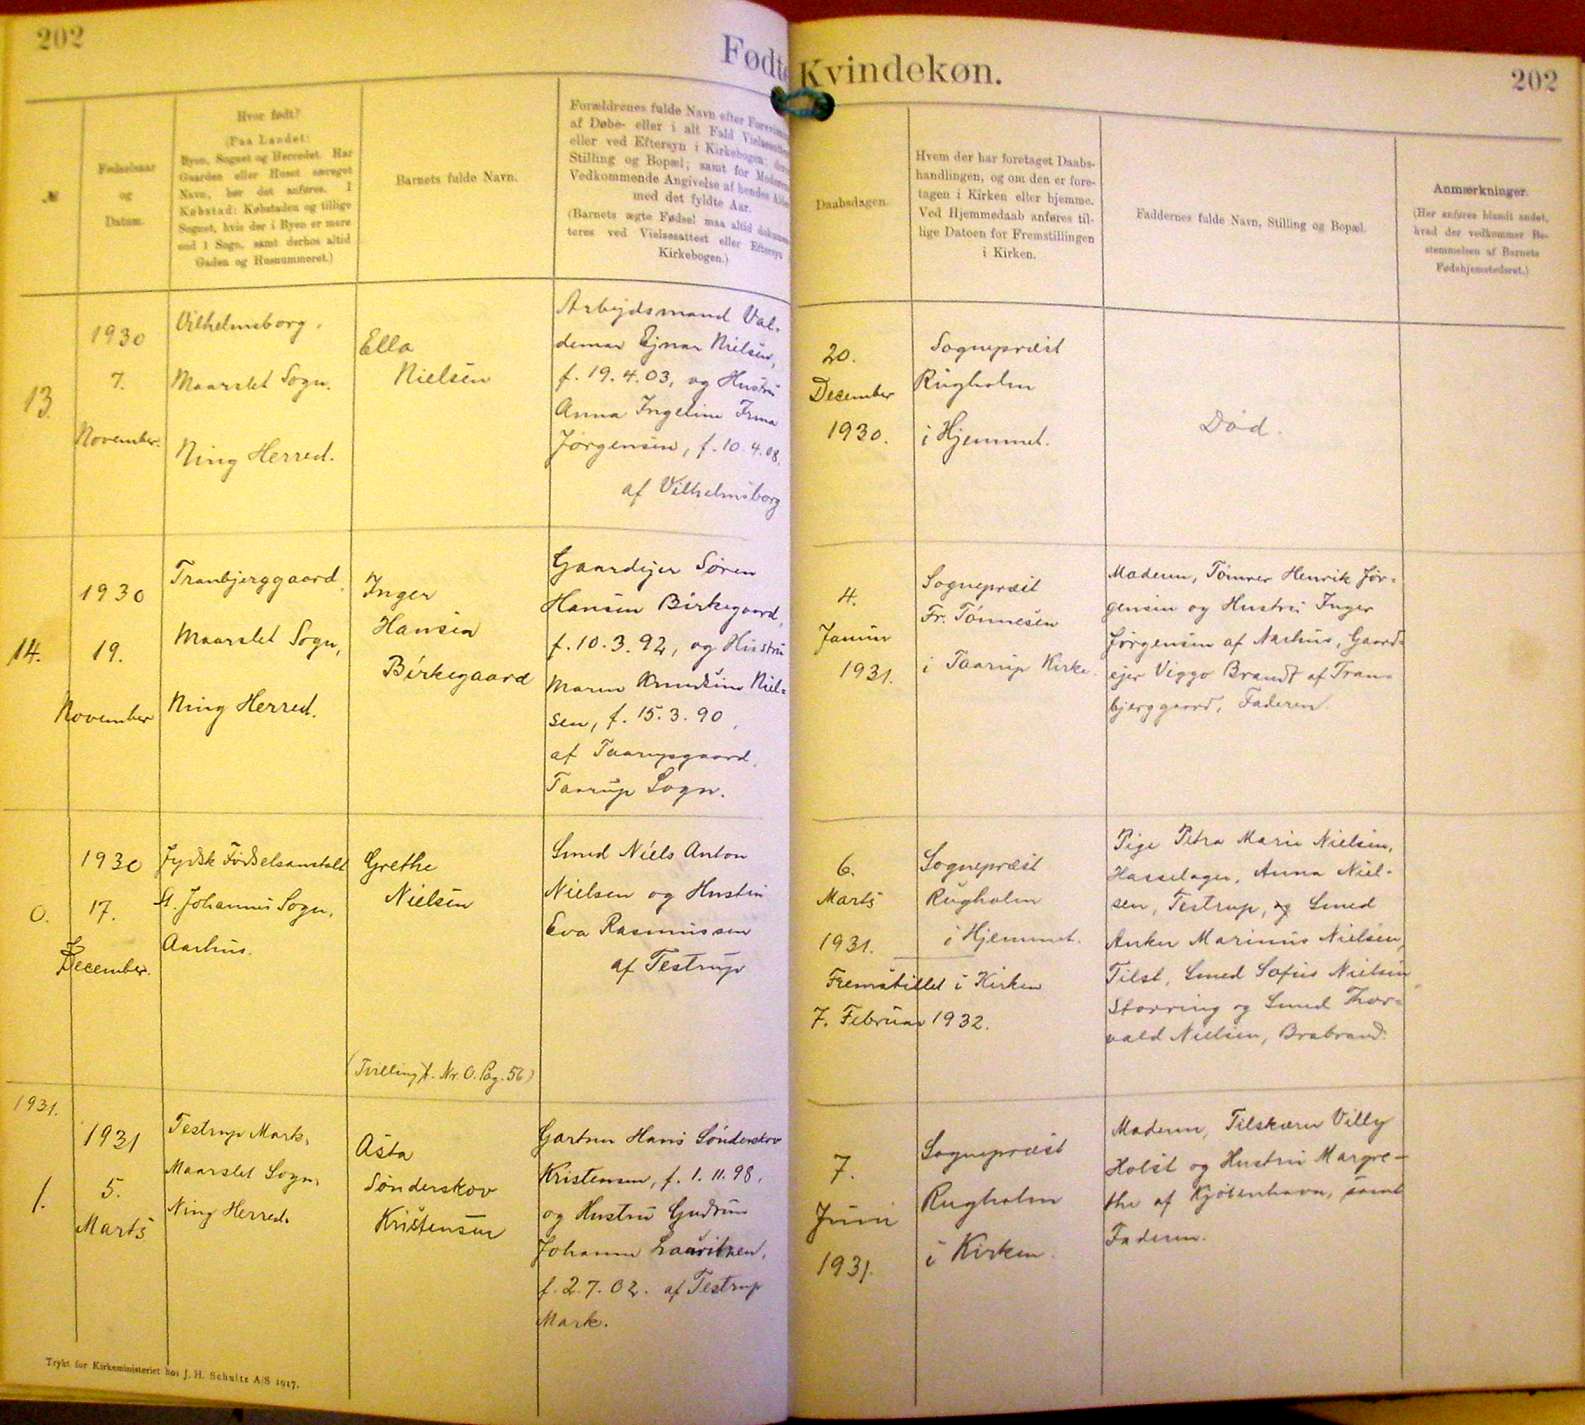 202
Fødte Kvindekøn.
202
№
Fødselsaar
og
Datum.
Hvor født?
(Paa Landet:
Byen, Sognet og Herredet. Har
Gaarden eller Huset særeget
Navn, bør det anføres. I
Købstad: Købstaden og tillige
Sognet, hvis der i Byen er mere
end 1 Sogn, samt derhos altid
Gaden og Husnummeret.)
Barnets fulde Navn.
Forældrenes fulde Navn efter
af Døbe- eller i alt Fald
eller ved Eftersyn i Kirkebogen;
Stilling og Bopæl; samt for
Vedkommende Angivelse af hendes
med det fyldte Aar.
(Barnets ægte Fødsel maa altid
teres ved Vielsesattest eller Eftersyn
Kirkebogen.)
Daabsdagen.
Hvem der har foretaget Daabs-
handlingen, og om den er fore-
tagen i Kirken eller hjemme.
Ved Hjemmedaab anføres til-
lige Datoen for Fremstillingen
i Kirken.
Faddernes fulde Navn, Stilling og Bopæl.
Anmærkninger.
(Her anføres blandt andet,
hvad der vedkommer Be-
stemmelsen af Barnets
Fødehjemstedsret.)
13.
1930
7.
November.
Vilhelmsborg.
Maarslet Sogn.
Ning Herred.
Ella
Nielsen
Arbejdsmand Val-
demar Ejnar Nielsen,
f. 19.4.03, og Hustru
Anna Ingeline Irma
Jørgensen, f. 10.4.08.
af Vilhelmsborg
20.
December
1930.
Sognepræst
Rugholm
i Hjemmet.
Død.
14.
1930
19.
November
Tranbjerggaard
Maarslet Sogn,
Ning Herred.
Inger
Hansen
Birkegaard
Gaardejer Søren
Hansen Birkegaard,
f. 10.3.92, og Hustru
Maren Knudsine Niel-
sen, f. 15.3.90,
af Taarupgaard,
Taarup Sogn.
4.
Januar
1931.
Sognepræst
Fr. Tönnesen
i Taarup Kirke.
Moderen, Tømrer Henrik Jør-
gensen og Hustru Inger
Jørgensen af Aarhus, Gaard-
ejer Viggo Brandt af Tran-
bjerggaard, Faderen.
0.
1930
17.
December.
Jydsk Fødselsanstalt
St. Johannes Sogn,
Aarhus.
Grethe
Nielsen
(Tvilling f. Nr. 0. Pag. 56)
Smed Niels Anton
Nielsen og Hustru
Eva Rasmussen
af Testrup
6.
Marts
1931.
Sognepræst
Rugholm
i Hjemmet.
Fremstillet i Kirken
7. Februar 1932.
Pige Petra Marie Nielsen,
Hasselager, Anna Niel-
sen, Testrup, og Smed
Anker Marinus Nielsen,
Tilst, Smed Sofus Nielsen
Storring og Smed Thor-
vald Nielsen, Brabrand.
1931.
1.
1931
5.
Marts
Testrup Mark,
Maarslet Sogn,
Ning Herred.
Asta
Sønderskov
Kristensen
Gartner Hans Sønderskov
Kristensen, f. 1.11.98,
og Hustru Gudrun
Johanne Lauritzen,
f. 2.7.02. af Testrup
Mark.
7.
Juni
1931.
Sognepræst
Rugholm
i Kirken.
Moderen, Tilskærer Villy
Holst og Hustru Margre-
the af Kjøbenhavn, samt
Faderen.
Trykt for Kirkeministeriet hos J. H. Schultz A/S 1917.